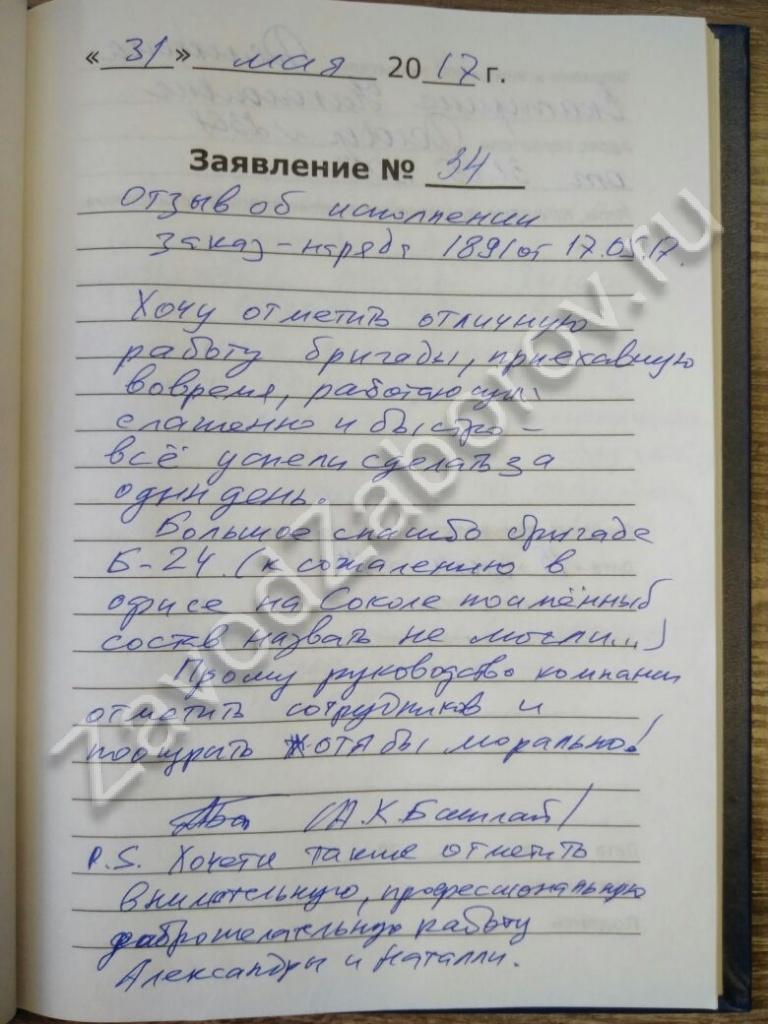 «31» мая 2017 г.
Заявление № 34
Отзыв об исполнении
заказ-наряда 1891 от 17.05.17.
Хочу отметить отличную
работу бригады, приехавшую
вовремя, работающую
слаженно и быстро –
всё успели сделать за
один день.
Большое спасибо бригаде
Б-24. (к сожалению в
офисе на Соколе поимённый
состав назвать не могли...)
Прошу руководство компании
отметить сотрудников и
поощрить хотя бы морально!
(А.К.
P.S. Хочется также отметить
внимательную, профессиональную
доброжелательную работу
Александры и Наталли.
ZavodZaborov.ru